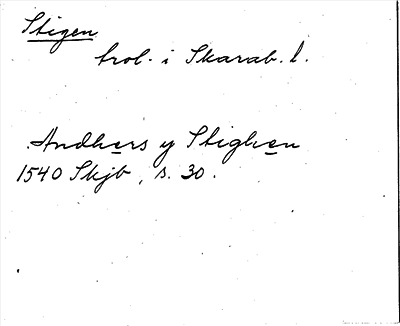 Stigen
trol. i Skarab. l.
Andhers y Stighen
1540 Skjb, s. 30.